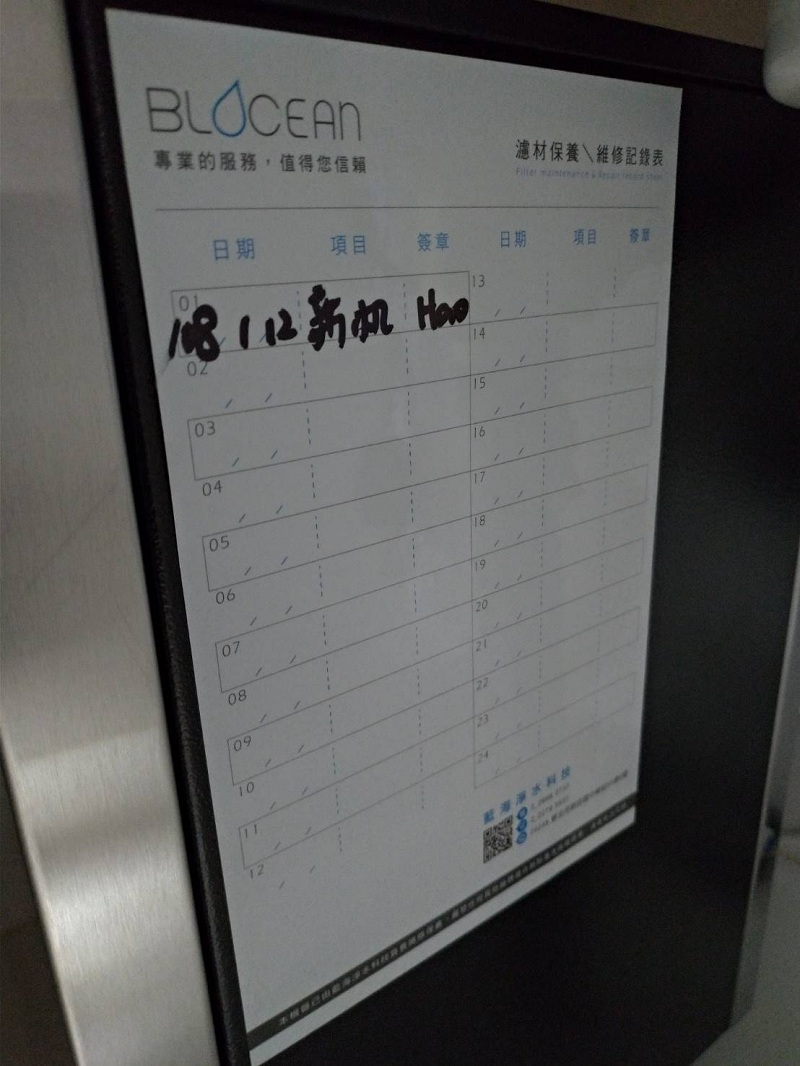 BLOCEAN
專業的服務，值得您信賴
濾材保養＼維修記錄表
Filter maintenance & Repair record sheet
日期 項目 簽章 日期 項目 簽章
01 108 1 12 新机
02
03
04
05
06
07
08
09
10
11
12
13
14
15
16
17
18
19
20
21
22
23
24
藍海淨水科技